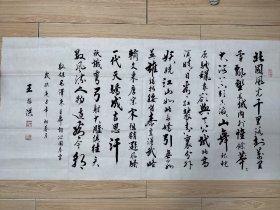 北國風光千里冰封萬里
雪飄望長城内外惟餘莽莽
大河上下頓失滔滔山舞銀蛇
原馳蠟象欲與天公試比高
須晴日看紅裝素裹分外
妖嬈江山如此多嬌引無數
英雄競折腰惜秦皇漢武略
輸文采唐宗宋祖稍遜風騷
一代天驕成吉思汗
只識彎弓射大雕俱往矣
數風流人物還看今朝
毛澤東
王